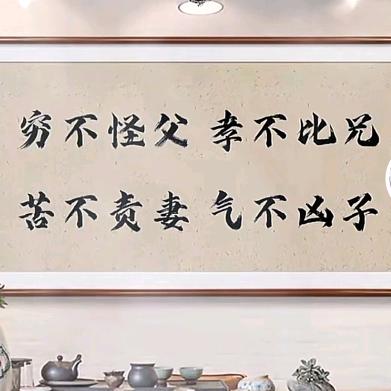 穷不怪父 孝不比兄
苦不责妻 气不凶子